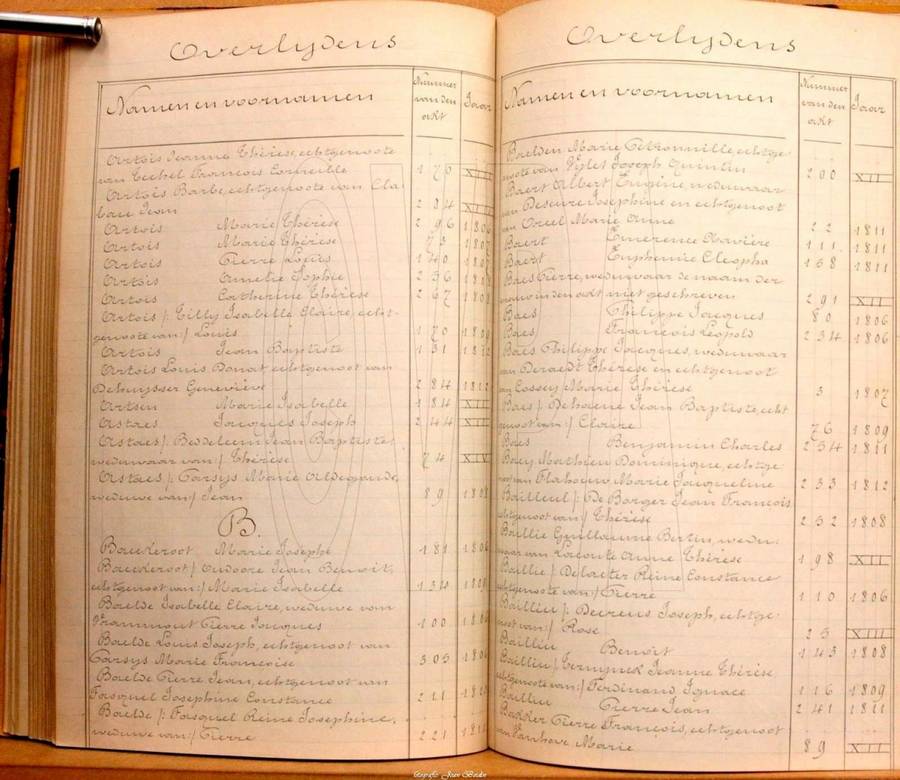 Overlijdens
Namen en voornamen
Nummer van den akt
Jaar
Artois Jeanne Thérèse, echtgenoote
van François Corneille 176 XII
Artois Barbe, echtgenoote van
Jean 284 XII
Artois Marie Thérèse 296 1806
Artois Marie Thérèse 73 1807
Artois Pierre Louis 140
Artois Amelie Sophie 256
Artois Catherine Thérèse 267 1808
Artois /: Tilly Isabelle Claire, echt-
genoote van :/ Louis 170 1809
Artois Jean Baptiste 131 1812
Artois Louis Donat, echtgenoot van
Geneviève 284 1812
Artsen Marie Isabelle 184 XII
Astaes Jacques Joseph 244 XII
Astaes /: Jean Baptiste,
weduwaar van :/ Thérèse 74 XIV
Astaes /: Carsys Marie Aldegonde,
weduwe van :/ Jean 89 1808
B
Bauderoot Marie Josephe 181 1806
Bauderoot /: Jean Benoit,
echtgenoot van :/ Marie Isabelle 134 1809
Baelde Isabelle Claire, weduwe van
Pierre Jacques 100
Baelde Louis Joseph, echtgenoot van
Carsys Marie Françoise 305 1806
Baelde Pierre Jean, echtgenoot van
Fasquel Josephine Constance 211
Baelde /: Fasquel Reine Josephine,
weduwe van :/ Pierre 221
Overlijdens
Namen en voornamen
Nummer van den akt
Jaar
Baelden Marie Pétronnille, echtge-
noote van Joseph Quintin 200 XII
Baert Albert Eugène, weduwaar
van Josephine en echtgenoot
van Marie Anne 22 1811
Baert Emerence Xavière 111 1811
Baert Euphemie Cleopha 168 1811
Baes Pierre, weduwaar de naam der
vrouw in den akt niet geschreven 291 XII
Baes Philippe Jacques 80 1806
Baes François Leopold 234 1806
Baes Philippe Jacques, weduwaar
van Deraedt Thérèse en echtgenoot
van Cossey Marie Thérèse 3 1807
Baes /: Dehaene Jean Baptiste, echt
genoot van :/ Claire 76 1809
Baes Benjamin Charles 254 1811
Baey Mathieu Dominique, echtge-
noot van Marie Jacqueline 233 1812
Bailleul /: De Borger Jean François
echtgenoot van :/ Thérèse 252 1808
Baillie Guillaume Bertin, wedu-
waar van Anne Thérèse 198 XII
Baillie /: Reine Constance
echtgenoote van :/ Pierre 110 1806
Baillieu /: Joseph, echtge-
noot van :/ Rose 25 XIII
Baillieu Benoit 143 1808
Baillieu /: Jeanne Thérèse,
echtgenoote van :/ Ferdinand Ignace 116 1809
Baillieu Pierre Jean 241 1811
Bakker Pierre François, echtgenoot
van Marie 89 XII